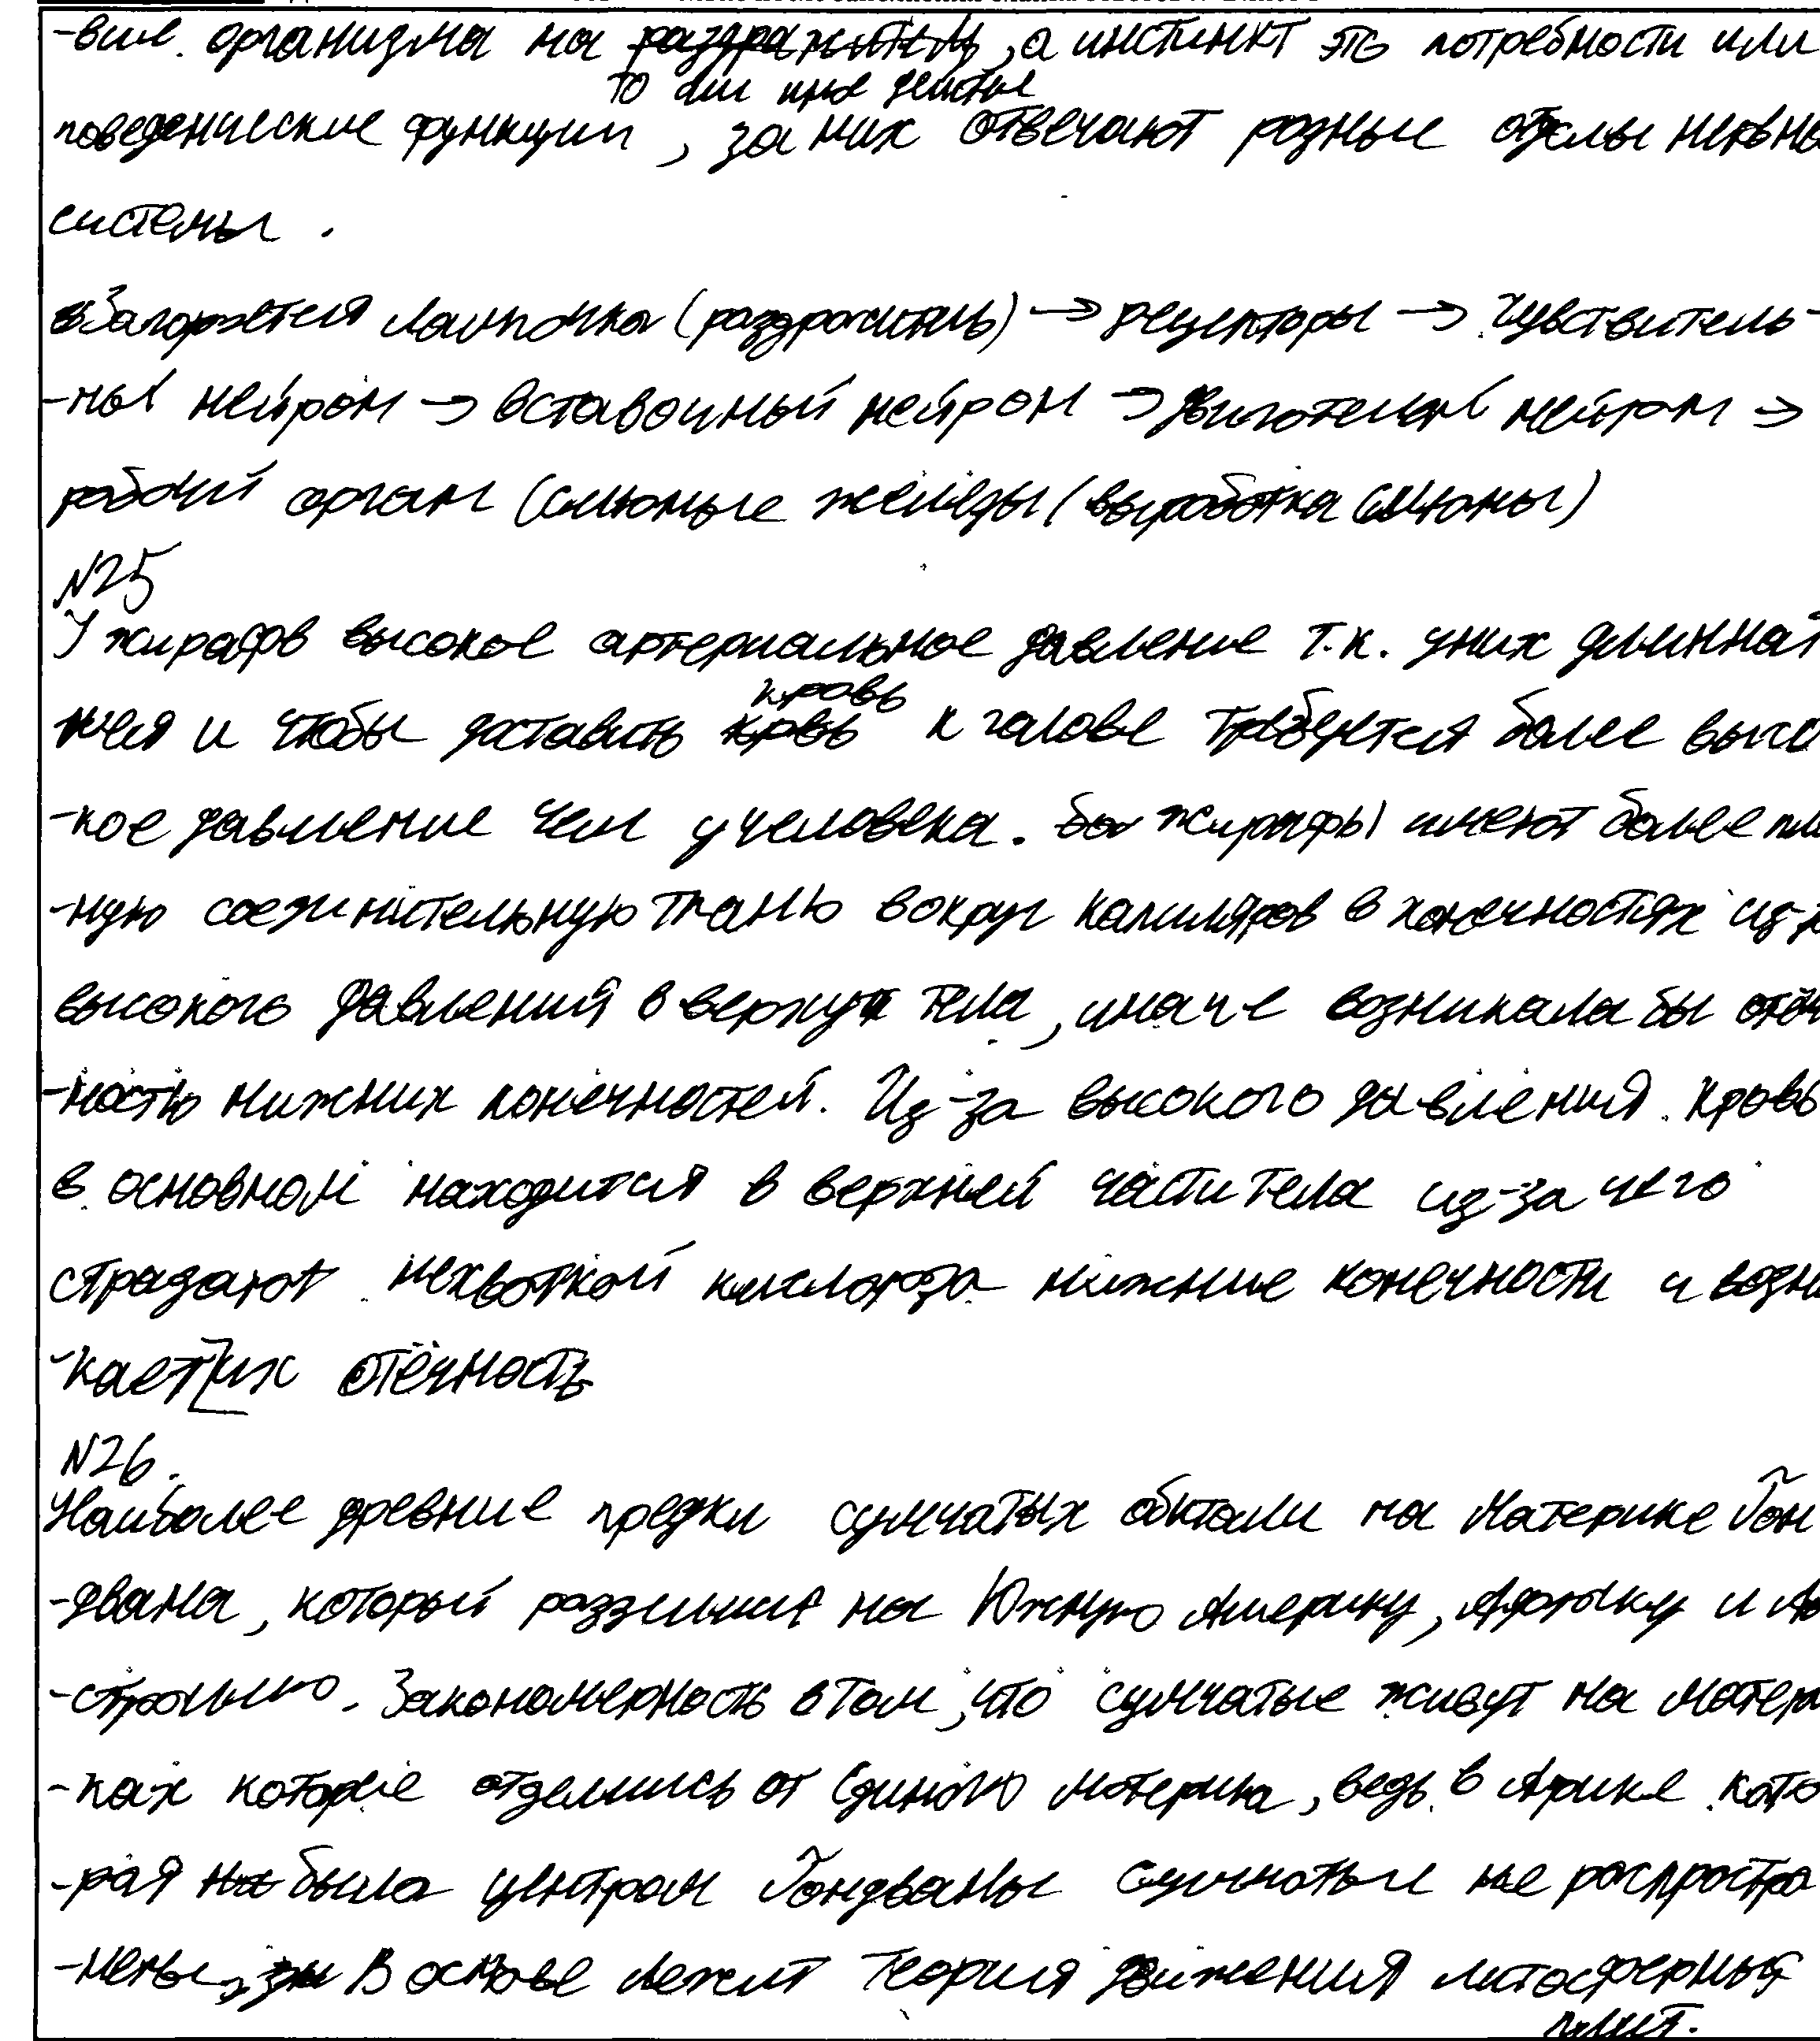 -вие организма на раздражитель, а инстинкт это потребности или
то или иное действие
поведенческие функции, за них отвечают разные отделы нервно
системы.
Загорается лампочка (раздражитель) → рецепторы → чувствитель-
-ный нейрон → вставочный нейрон → двигательный нейрон →
рабочий орган (слюные железы (выработка слюны)
№25
У жирафов высокое артериальное давление т.к. у них длинная
шея и чтобы доставить кровь
кровь к голове требуется более высо
-кое давление чем у человека. жирафы имеют более пло
-ную соединительную ткань вокруг капиляров в конечностях из-за
высокого давлений в верху тела, иначе возникала бы отёч
-ность нижних конечностей. Из-за высокого давления кровь
в основном находится в верхней части тела из-за чего
страдают нехваткой кислорода нижние конечности и возни
-кает их отёчность
№26.
Наиболее древние предки сумчатых обитали на материке Гон
-двана, который раззделился на Южную Америку, Африку и Ав
-стралию. Закономерность в том, что сумчатые живут на матери
-ках которые отделились от единого материка, ведь в Африке кото
-рая была центром Гондваны сумчатые не распростра
-нены, В основе лежит теория движения литосферных
плит.